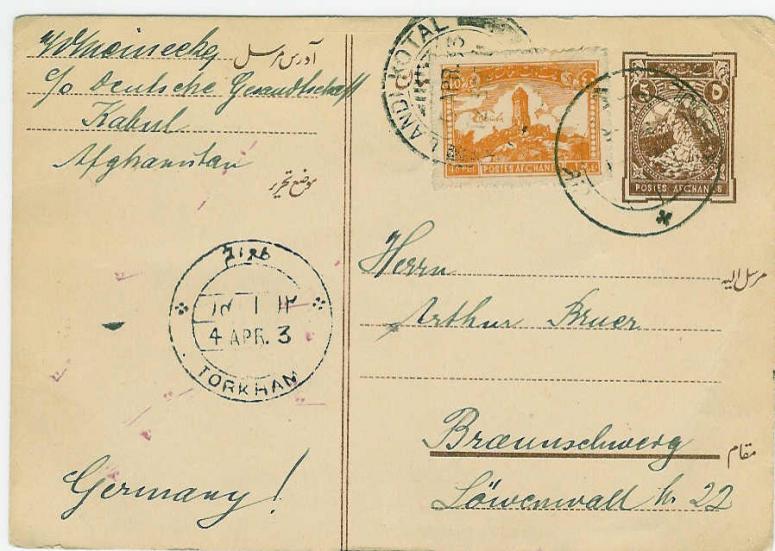 Meinecke آدرس مرسل
c/o Deutsche Gesandtschaft
Kabul
Afghanistan
موضع تحریر
LANDI KOTAL
POSTES AFGHANES
POSTES AFGHANES
طورخم
4 APR. 3
TORKHAM
Herrn
مرسل الیه
Arthur Bruer
Braunschweig
مقام
Löwenwall N. 22
Germany!